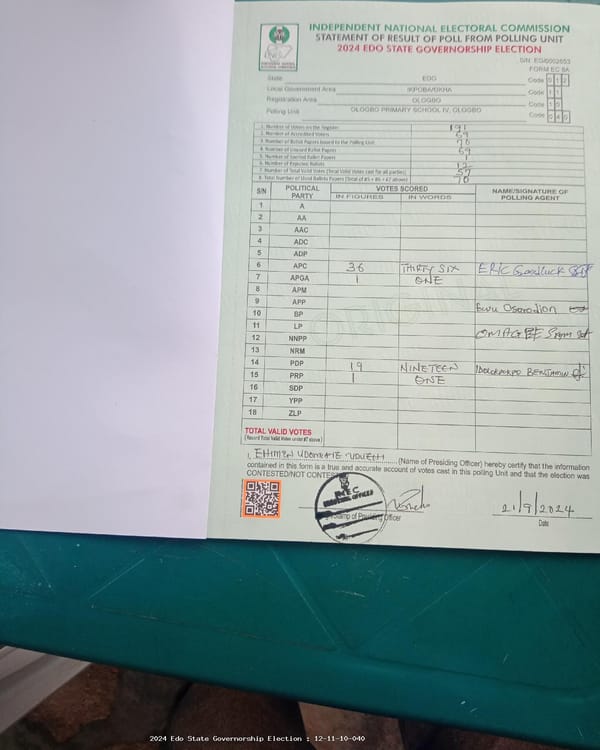 INDEPENDENT NATIONAL ELECTORAL COMMISSION
STATEMENT OF RESULT OF POLL FROM POLLING UNIT
2024 EDO STATE GOVERNORSHIP ELECTION
FORM EC 8A
State EDO Code 0 1 2
Local Government Area IKPOBA/OKHA Code 1 1
Registration Area OLOGBO Code 1 0
Polling Unit OLOGBO PRIMARY SCHOOL IV, OLOGBO Code 0 4 0
1. Number of Voters on the Register 191
2. Number of Accredited Voters 69
3. Number of Ballot Papers Issued to the Polling Unit
4. Number of Unused Ballot Papers
5. Number of Spoiled Ballot Papers 1
6. Number of Rejected Ballots 12
7. Number of Total Valid Votes (Total Valid Votes cast for all parties) 57
8. Total Number of Used Ballot Papers (Total of #5 + #6 + #7 above) 70
S/N POLITICAL PARTY VOTES SCORED NAME/SIGNATURE OF POLLING AGENT
IN FIGURES IN WORDS
1 A
2 AA
3 AAC
4 ADC
5 ADP
6 APC 36 THIRTY SIX ERIC Goodluck
7 APGA 1 ONE
8 APM
9 APP
10 BP
11 LP
12 NNPP
13 NRM
14 PDP 19 NINETEEN BENJAMIN
15 PRP 1 ONE
16 SDP
17 YPP
18 ZLP
TOTAL VALID VOTES
(Record Total Valid Votes under #7 above)
I, EHIMEN (Name of Presiding Officer) hereby certify that the information
contained in this form is a true and accurate account of votes cast in this polling Unit and that the election was
CONTESTED/NOT CONTESTED
INEC
Stamp of Presiding Officer
21/9/2024
Date
2024 Edo State Governorship Election : 12-11-10-040